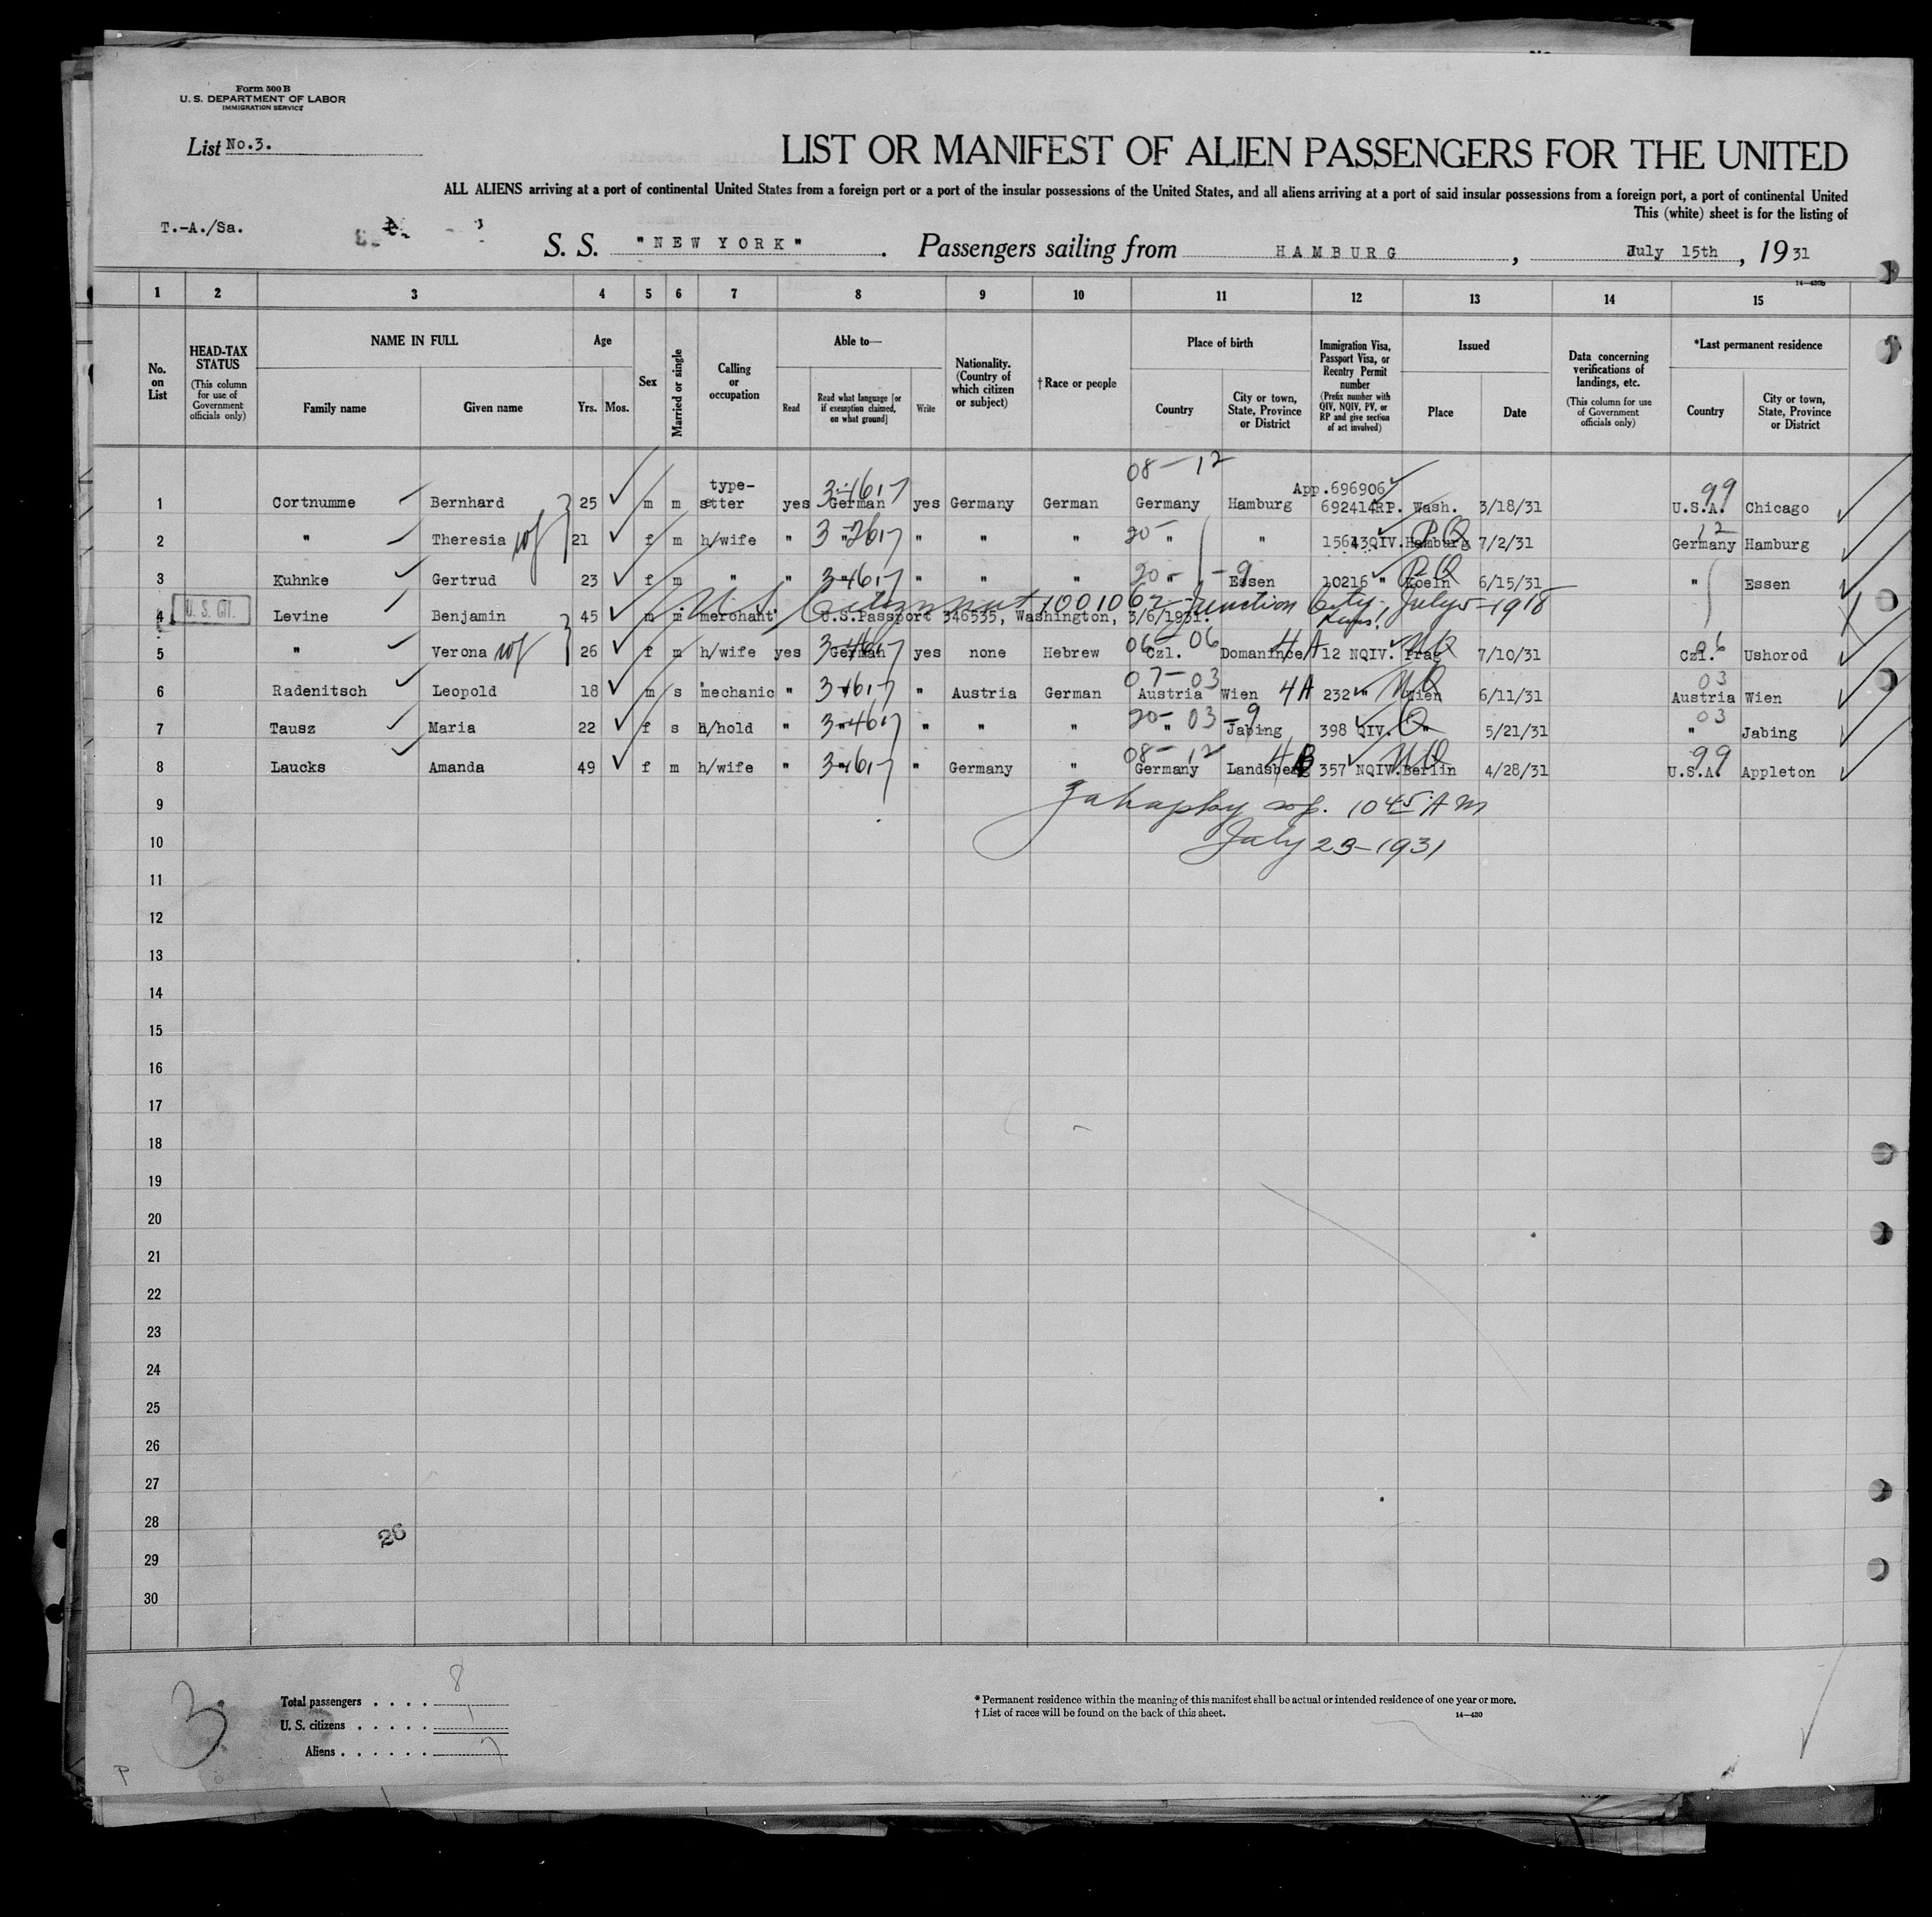 Form 500 B
U. S. DEPARTMENT OF LABOR
IMMIGRATION SERVICE
List No.3.
LIST OR MANIFEST OF ALIEN PASSENGERS FOR THE UNITED
ALL ALIENS arriving at a port of continental United States from a foreign port or a port of the insular possessions of the United States, and all aliens arriving at a port of said insular possessions from a foreign port, a port of continental United
This (white) sheet is for the listing of
T.-A./Sa.
S. S. "NEW YORK". Passengers sailing from HAMBURG, July 15th, 1931
14—430b
1 2 3 4 5 6 7 8 9 10 11 12 13 14 15
No. on List
HEAD-TAX STATUS (This column for use of Government officials only)
NAME IN FULL Family name Given name
Age Yrs. Mos.
Sex
Married or single
Calling or occupation
Able to— Read Read what language [or if exemption claimed, on what ground] Write
Nationality. (Country of which citizen or subject)
†Race or people
Place of birth Country City or town, State, Province or District
Immigration Visa, Passport Visa, or Reentry Permit number (Prefix number with QIV, NQIV, PV, or RP and give section of act involved)
Issued Place Date
Data concerning verifications of landings, etc. (This column for use of Government officials only)
*Last permanent residence Country City or town, State, Province or District
08-12
type- App.696906 99
1 Cortnumme Bernhard 25 m m setter yes German yes Germany German Germany Hamburg 692414RP. Wash. 3/18/31 U.S.A. Chicago
20- PQ 12
2 " Theresia wf 21 f m h/wife " " " " " " " 15643QIV. Hamburg 7/2/31 Germany Hamburg
20- -9 PQ
3 Kuhnke Gertrud 23 f m " " " " " " " Essen 10216 " Koeln 6/15/31 " Essen
U.S. Citizen 1001062 - Junction City - July 5-1918
U. S. CIT.
4 Levine Benjamin 45 m m merchant U.S.Passport 346535, Washington, 3/6/1931.
06-06 4A NQ 06
5 " Verona wf 26 f m h/wife yes German yes none Hebrew Czl. 12 NQIV. Prag 7/10/31 Czl. Ushorod
07-03 4A NQ 03
6 Radenitsch Leopold 18 m s mechanic " " " Austria German Austria Wien 232 " Wien 6/11/31 Austria Wien
20-03-9 Q 03
7 Tausz Maria 22 f s h/hold " " " " " " Jabing 398 QIV. " 5/21/31 " Jabing
08-12 4B NQ 99
8 Laucks Amanda 49 f m h/wife " " " Germany " Germany Landsberg 357 NQIV. Berlin 4/28/31 U.S.A. Appleton
9
1045 AM
10
July 23-1931
11
12
13
14
15
16
17
18
19
20
21
22
23
24
25
26
27
28
26
29
30
3
Total passengers . . . . 8
U. S. citizens . . . . . 1
Aliens . . . . . . 7
* Permanent residence within the meaning of this manifest shall be actual or intended residence of one year or more.
† List of races will be found on the back of this sheet.
14—430
P